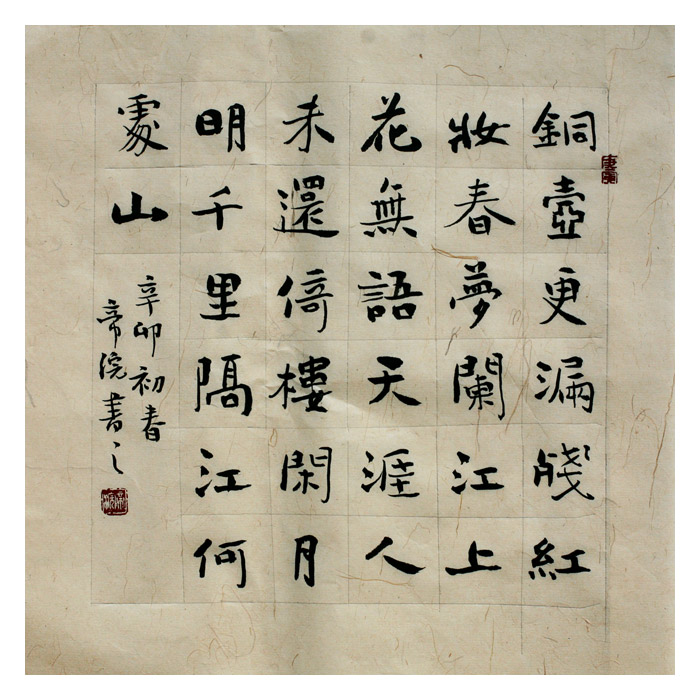 銅壺更漏殘紅
妝春夢闌江上
花無語天涯人
未還倚樓閑月
明千里隔江何
處山
辛卯初春
帝院書之